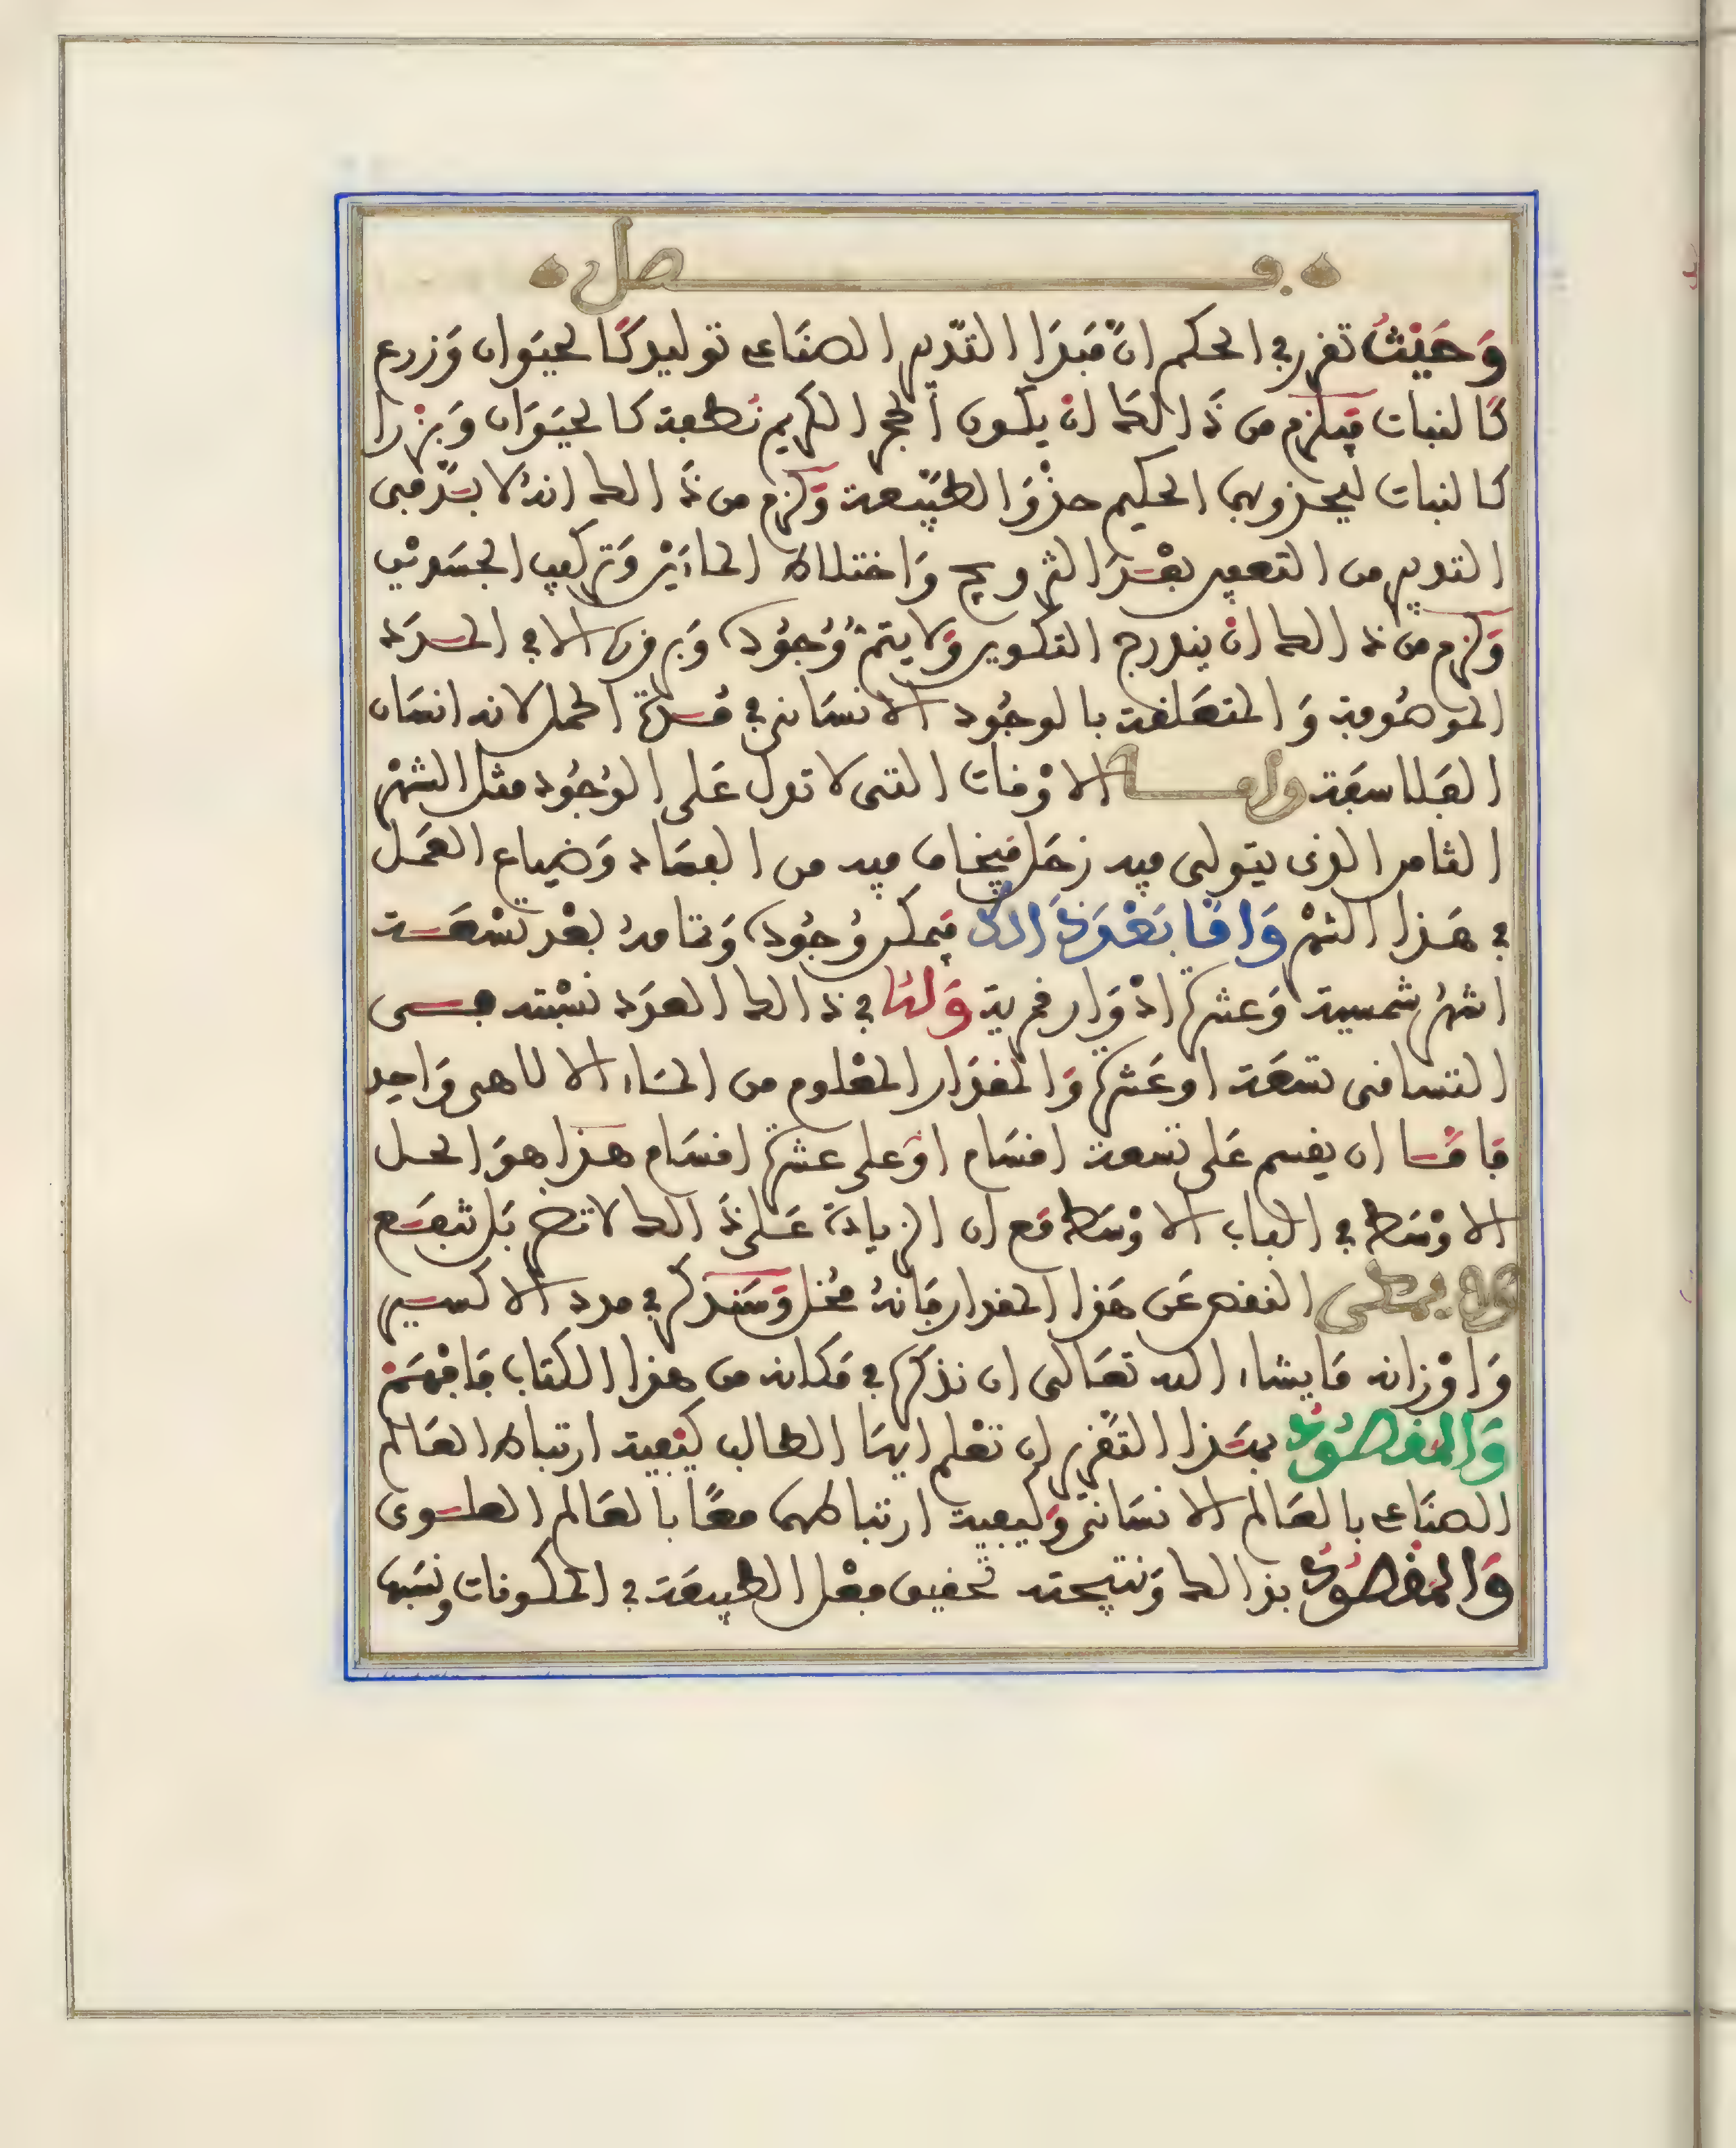 فصل
وَحَيْثُ تقرر في الحكم انّ مَبْدَا التّدبير الصنَاعي توليد كَالحيَوان وَزرع
كَالنبات فيَلزم من ذَالك انْ يكون الحجر الكريم نُطفة كالحيَوَان وَبزْرا
كالنبات ليحذو بهما الحكيم حذْوَ الطبِيعة وَلزم من ذَالك انهُ لا بدَّ في
التدبير من التعفين بعْدَ التزويج وَاختلاط المائَيْن وَتركيب الجسَدين
وَلزم من ذالك انْ يندرج التكوين وَلا يتمّ وُجُوده وَبروزه الا في المدَد
الموهُومة وَالمتعَلقة بالوجُود الانسَاني في مُدة الحمل لانه انسَان
الفَلاسفَة واما الاوْقات التي لا تدل عَلى الوُجُود مثل الشهْر
الثامن الذي يتولى فيه زحَل فيُخاف فيه من الفسَاد وَضياع العَمَل
في هَذا الشهْر وَامَا بَعْدَ ذَالك فيَمكن وُجُوده وَتمامهُ بعْد تسْعَة
اشهُر شمسية وَعشرة ادْوَار قمرية وَلمَا في ذالك العدَد نسْبته في
التساقي تسعَة او عَشرة وَالمقدَار المعْلوم من المَاء الالاهي وَاحد
فَامَا ان يقسم عَلى تسعة اقسَام اوْ على عشرة اقسَام هَذا هوَ الحل
الاوْسَط في الباب الاوْسَط مَع ان الزيادَة عَلى ذَالك لا تضر بَل تنفَع
النقص عَن هَذا المقدار فَانهُ مُخل وَسَنذكر في مدد الاكسير
وَاوْزانه مَا يشاء الله تعَالى ان نذكره في مَكانه من هذا الكتاب فَافهَمْ
وَالمقصُودُ بهَذا التَقرير ان تعْلم ايهَا الطالب كيْفية ارتباط العَالم
الصنَاعي بالعَالم الانسَاني وَكيفية ارتباطهما معًا بالعَالم العلوي
وَالمقْصُودُ بذالك وَنتيجته تحقيق فعْل الطبيعَة في المكونات ونسَبها